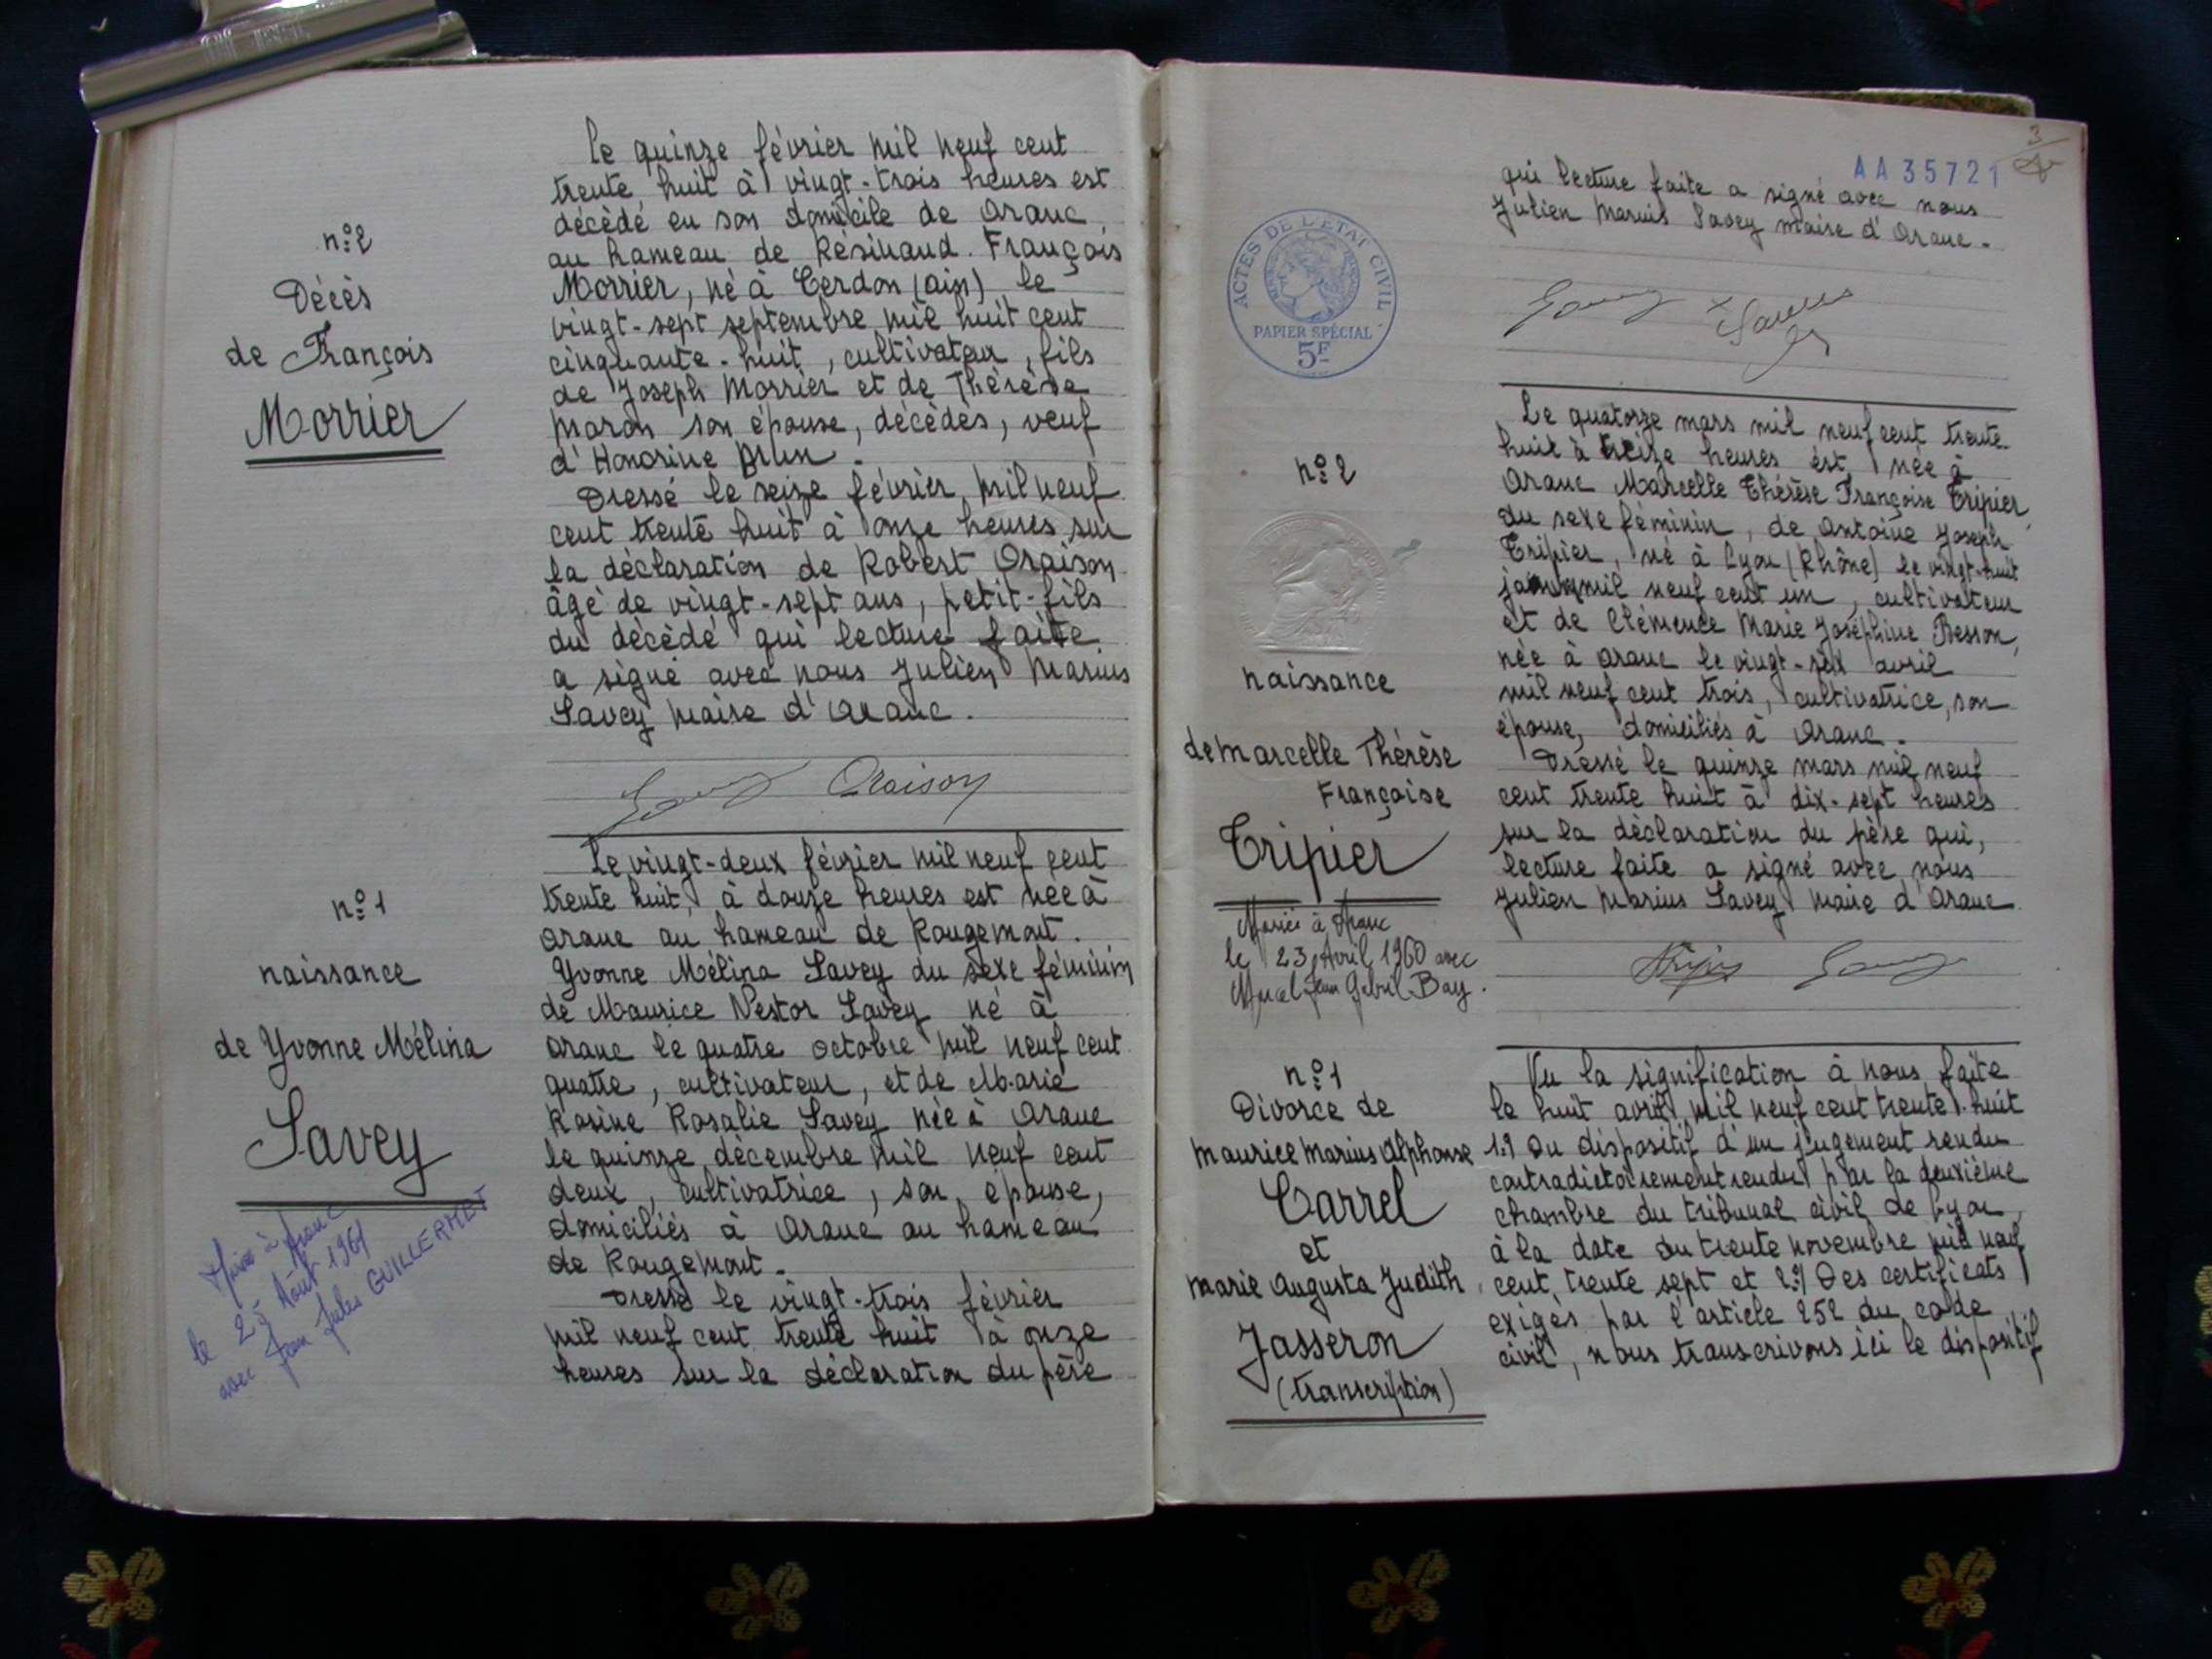 n° 2
Décès
de François
Morrier
le quinze février mil neuf cent
trente huit à vingt-trois heures est
décédé en son domicile de Aranc
au hameau de Résinand. François
Morrier, né à Cerdon (ain) le
vingt-sept septembre mil huit cent
cinquante-huit, cultivateur, fils
de Joseph Morrier et de Thérèse
Maron son épouse, décédés, veuf
d'Honorine Brun.
Dressé le seize février mil neuf
cent trente huit à onze heures sur
la déclaration de Robert Oraison
âgé de vingt-sept ans, petit-fils
du décédé qui lecture faite
a signé avec nous Julien Marius
Savey maire d'Aranc.
Savey Oraison
n° 1
naissance
de Yvonne Mélina
Savey
Mariée à Aranc
le 25 Août 1961
avec Jean Jules GUILLERMET
Le vingt-deux février mil neuf cent
trente huit, à douze heures est née à
Aranc au hameau de Rougemont.
Yvonne Mélina Savey du sexe féminin
de Maurice Nestor Savey né à
Aranc le quatre octobre mil neuf cent
quatre, cultivateur, et de Marie
Rosine Rosalie Savey née à Aranc
le quinze décembre mil neuf cent
deux, cultivatrice, son épouse,
domiciliés à Aranc au hameau
de Rougemont.
Dressé le vingt-trois février
mil neuf cent trente huit à onze
heures sur la déclaration du père
3
AA 35721
qui lecture faite a signé avec nous
Julien Marius Savey maire d'Aranc.
ACTES DE L'ETAT CIVIL
PAPIER SPÉCIAL
5F
Savey Savey
n° 2
naissance
de Marcelle Thérèse
Françoise
Tripier
Mariée à Aranc
le 23 Avril 1960 avec
Marcel Jean Gabriel Bay.
Le quatorze mars mil neuf cent trente
huit à treize heures est née à
Aranc Marcelle Thérèse Françoise Tripier
du sexe féminin, de Antoine Joseph
Tripier, né à Lyon (Rhône) le vingt-huit
mil neuf cent un, cultivateur
et de Clémence Marie Joséphine Besson,
née à Aranc le vingt-six avril
mil neuf cent trois, cultivatrice, son
épouse, domiciliés à Aranc.
Dressé le quinze mars mil neuf
cent trente huit à dix-sept heures
sur la déclaration du père qui,
lecture faite a signé avec nous
Julien Marius Savey maire d'Aranc
Tripier Savey
n° 1
Divorce de
Maurice Marius Alphonse
Carrel
et
Marie Augusta Judith
Jasseron
(transcription)
Vu la signification à nous faite
le huit avril mil neuf cent trente huit
1°) Du dispositif d'un jugement rendu
contradictoirement rendu par la deuxième
chambre du tribunal civil de Lyon,
à la date du trente novembre mil neuf
cent trente sept et 2°) Des certificats
exigés par l'article 252 du code
civil, nous transcrivons ici le dispositif